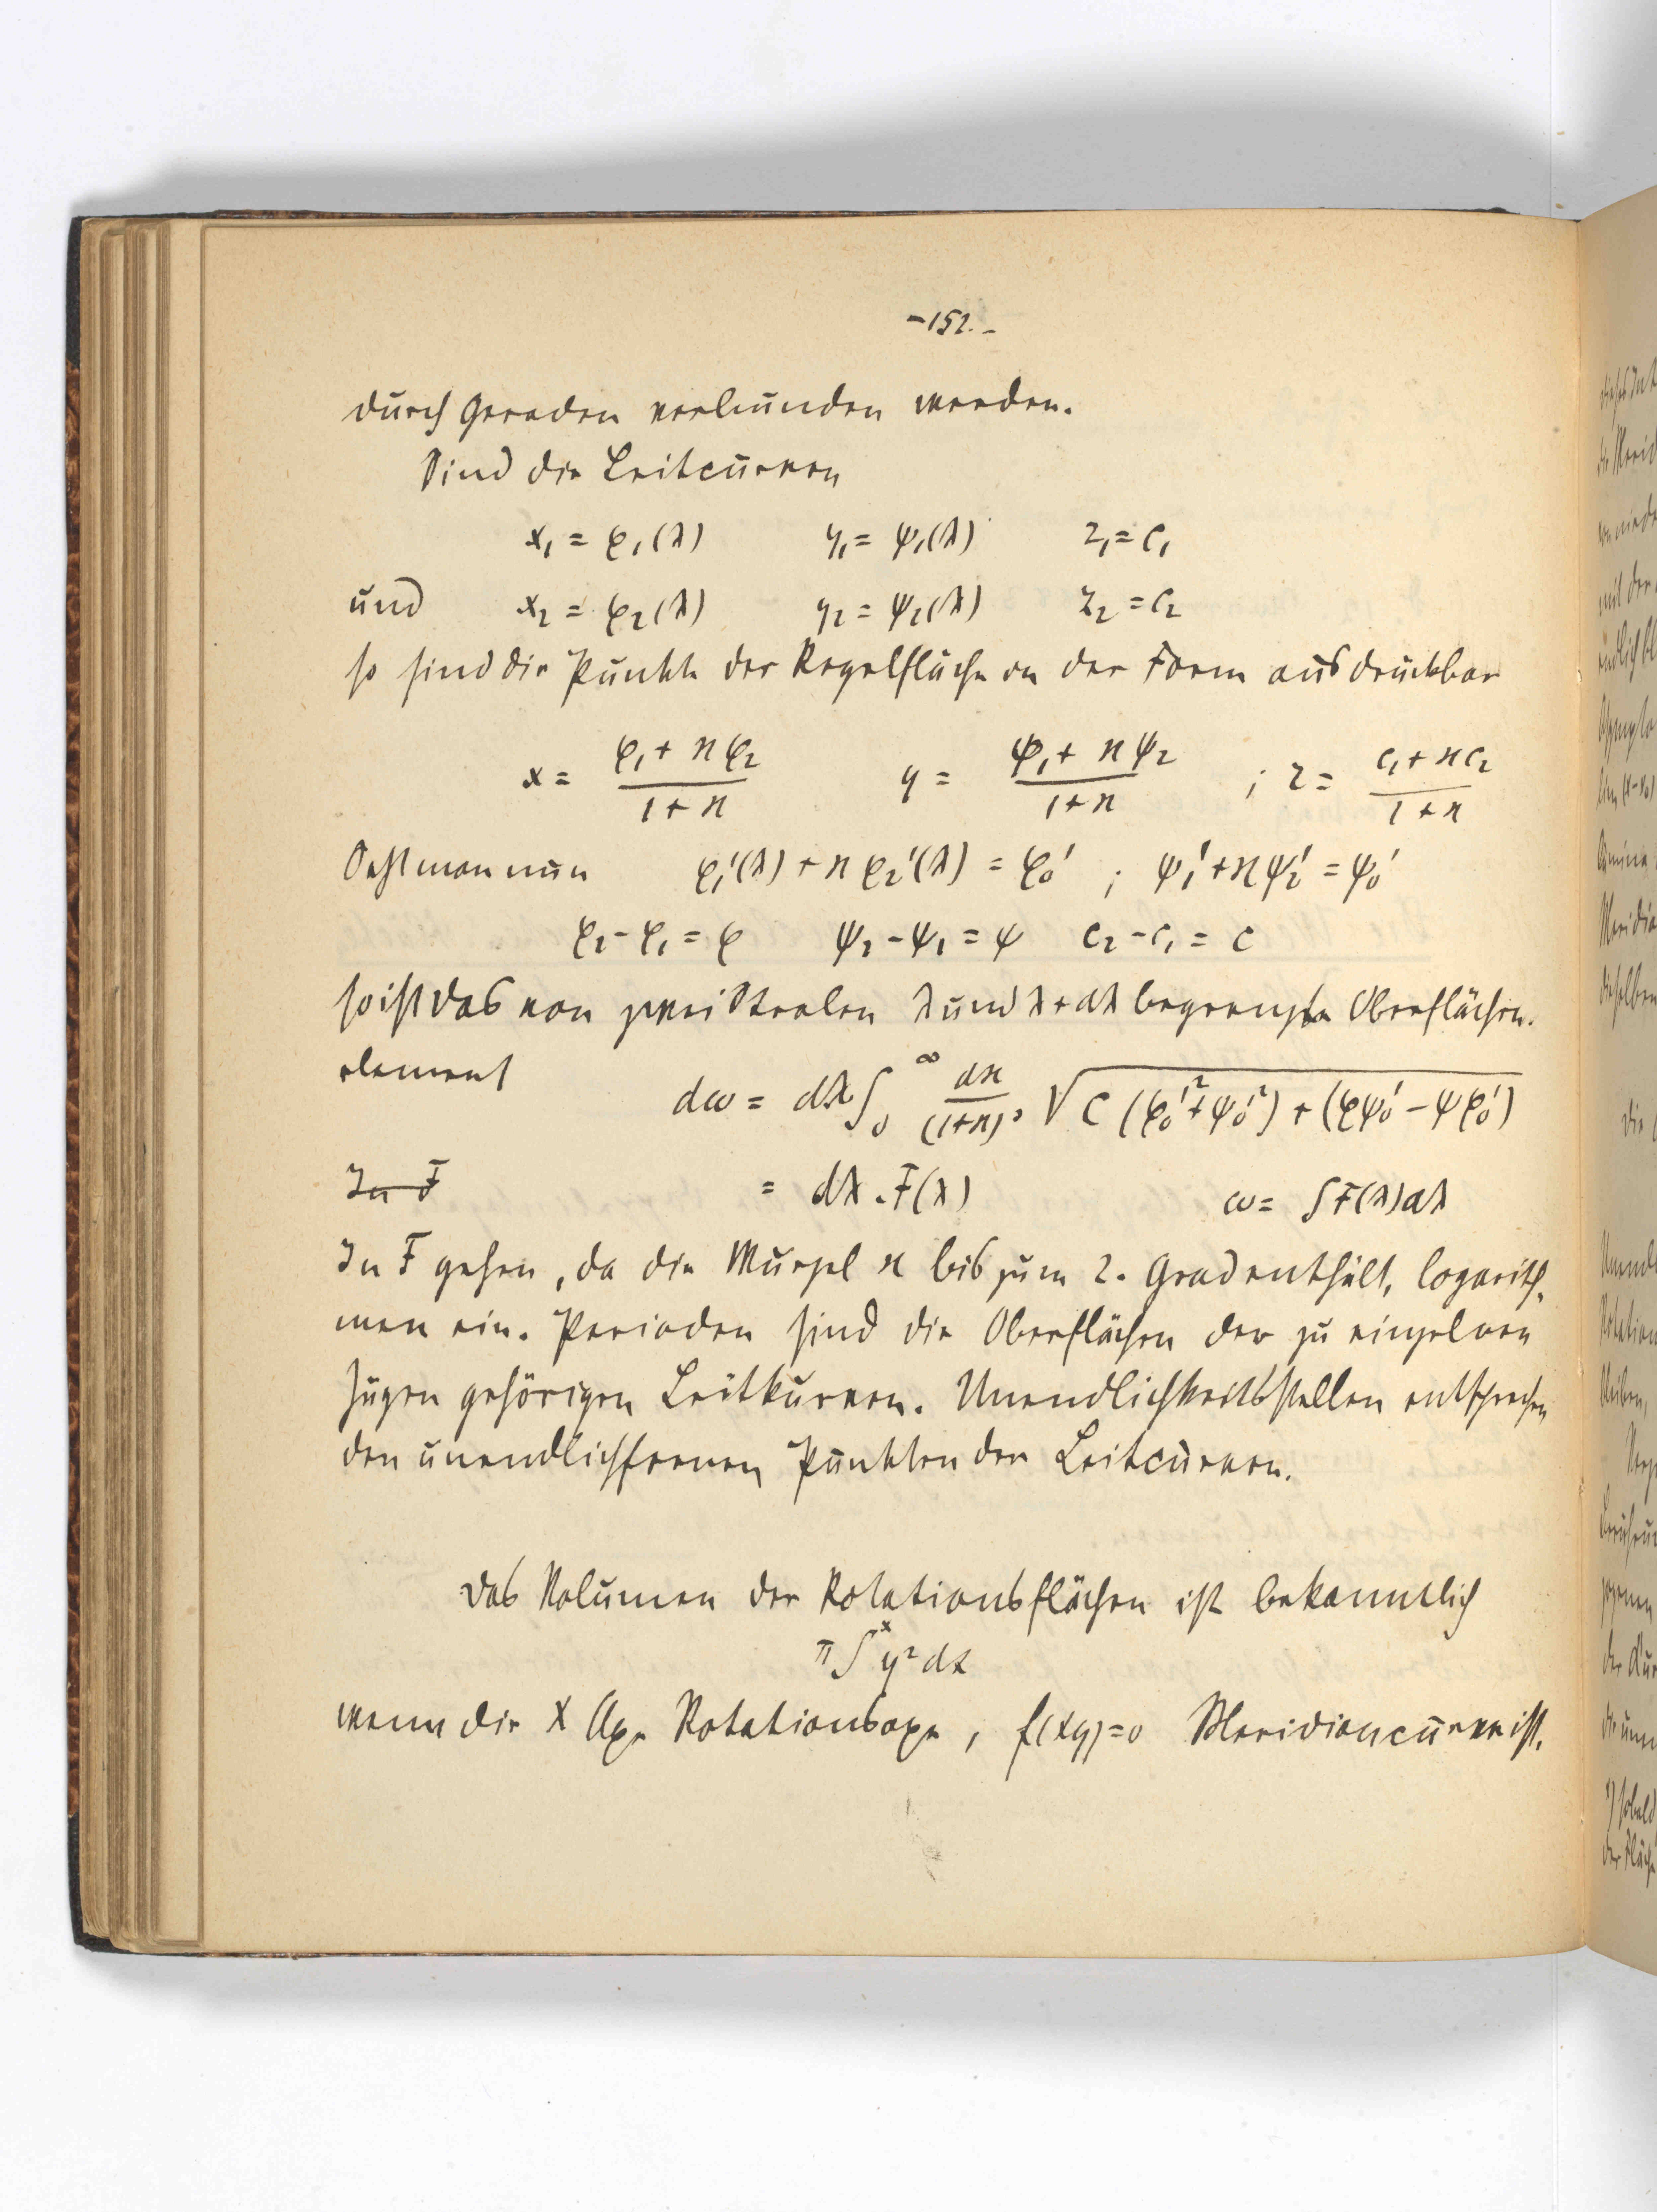 -152.-
durch Geraden verbunden werden.
Sind die Leitcurven
x₁ = φ₁(λ) y₁ = ψ₁(λ) z₁ = c₁
und x₂ = φ₂(λ) y₂ = ψ₂(λ) z₂ = c₂
so sind die Punkte der Regelfläche in der Form ausdrückbar
x = (φ₁ + ϰφ₂)/(1+ϰ) y = (ψ₁ + ϰψ₂)/(1+ϰ) ; z = (c₁ + ϰc₂)/(1+ϰ)
Setzt man nun φ₁'(λ) + ϰφ₂'(λ) = φ₀' ; ψ₁' + ϰψ₂' = ψ₀'
φ₂ - φ₁ = φ ψ₂ - ψ₁ = ψ c₂ - c₁ = c
so ist das von zwei Stralen λ und λ + dλ begrenzte Oberflächen-
element dω = dλ ∫₀^∞ dϰ/(1+ϰ)³ √(c(φ₀'² + ψ₀'²) + (φψ₀' - ψφ₀'))
In F = dλ . F(λ) ω = ∫F(λ)dλ
In F gehen, da die Wurzel ϰ bis zum 2. Grad enthält, logarith-
men ein. Perioden sind die Oberflächen der zu einzelnen
Zügen gehörigen Leitkurven. Unendlichkeitsstellen entsprechen
den unendlichfernen Punkten der Leitcurven.
Das Volumen der Rotationsflächen ist bekanntlich
π∫ˣ y²dx
wenn die X Axe Rotationsaxe, f(xy)=0 Meridiancurve ist.